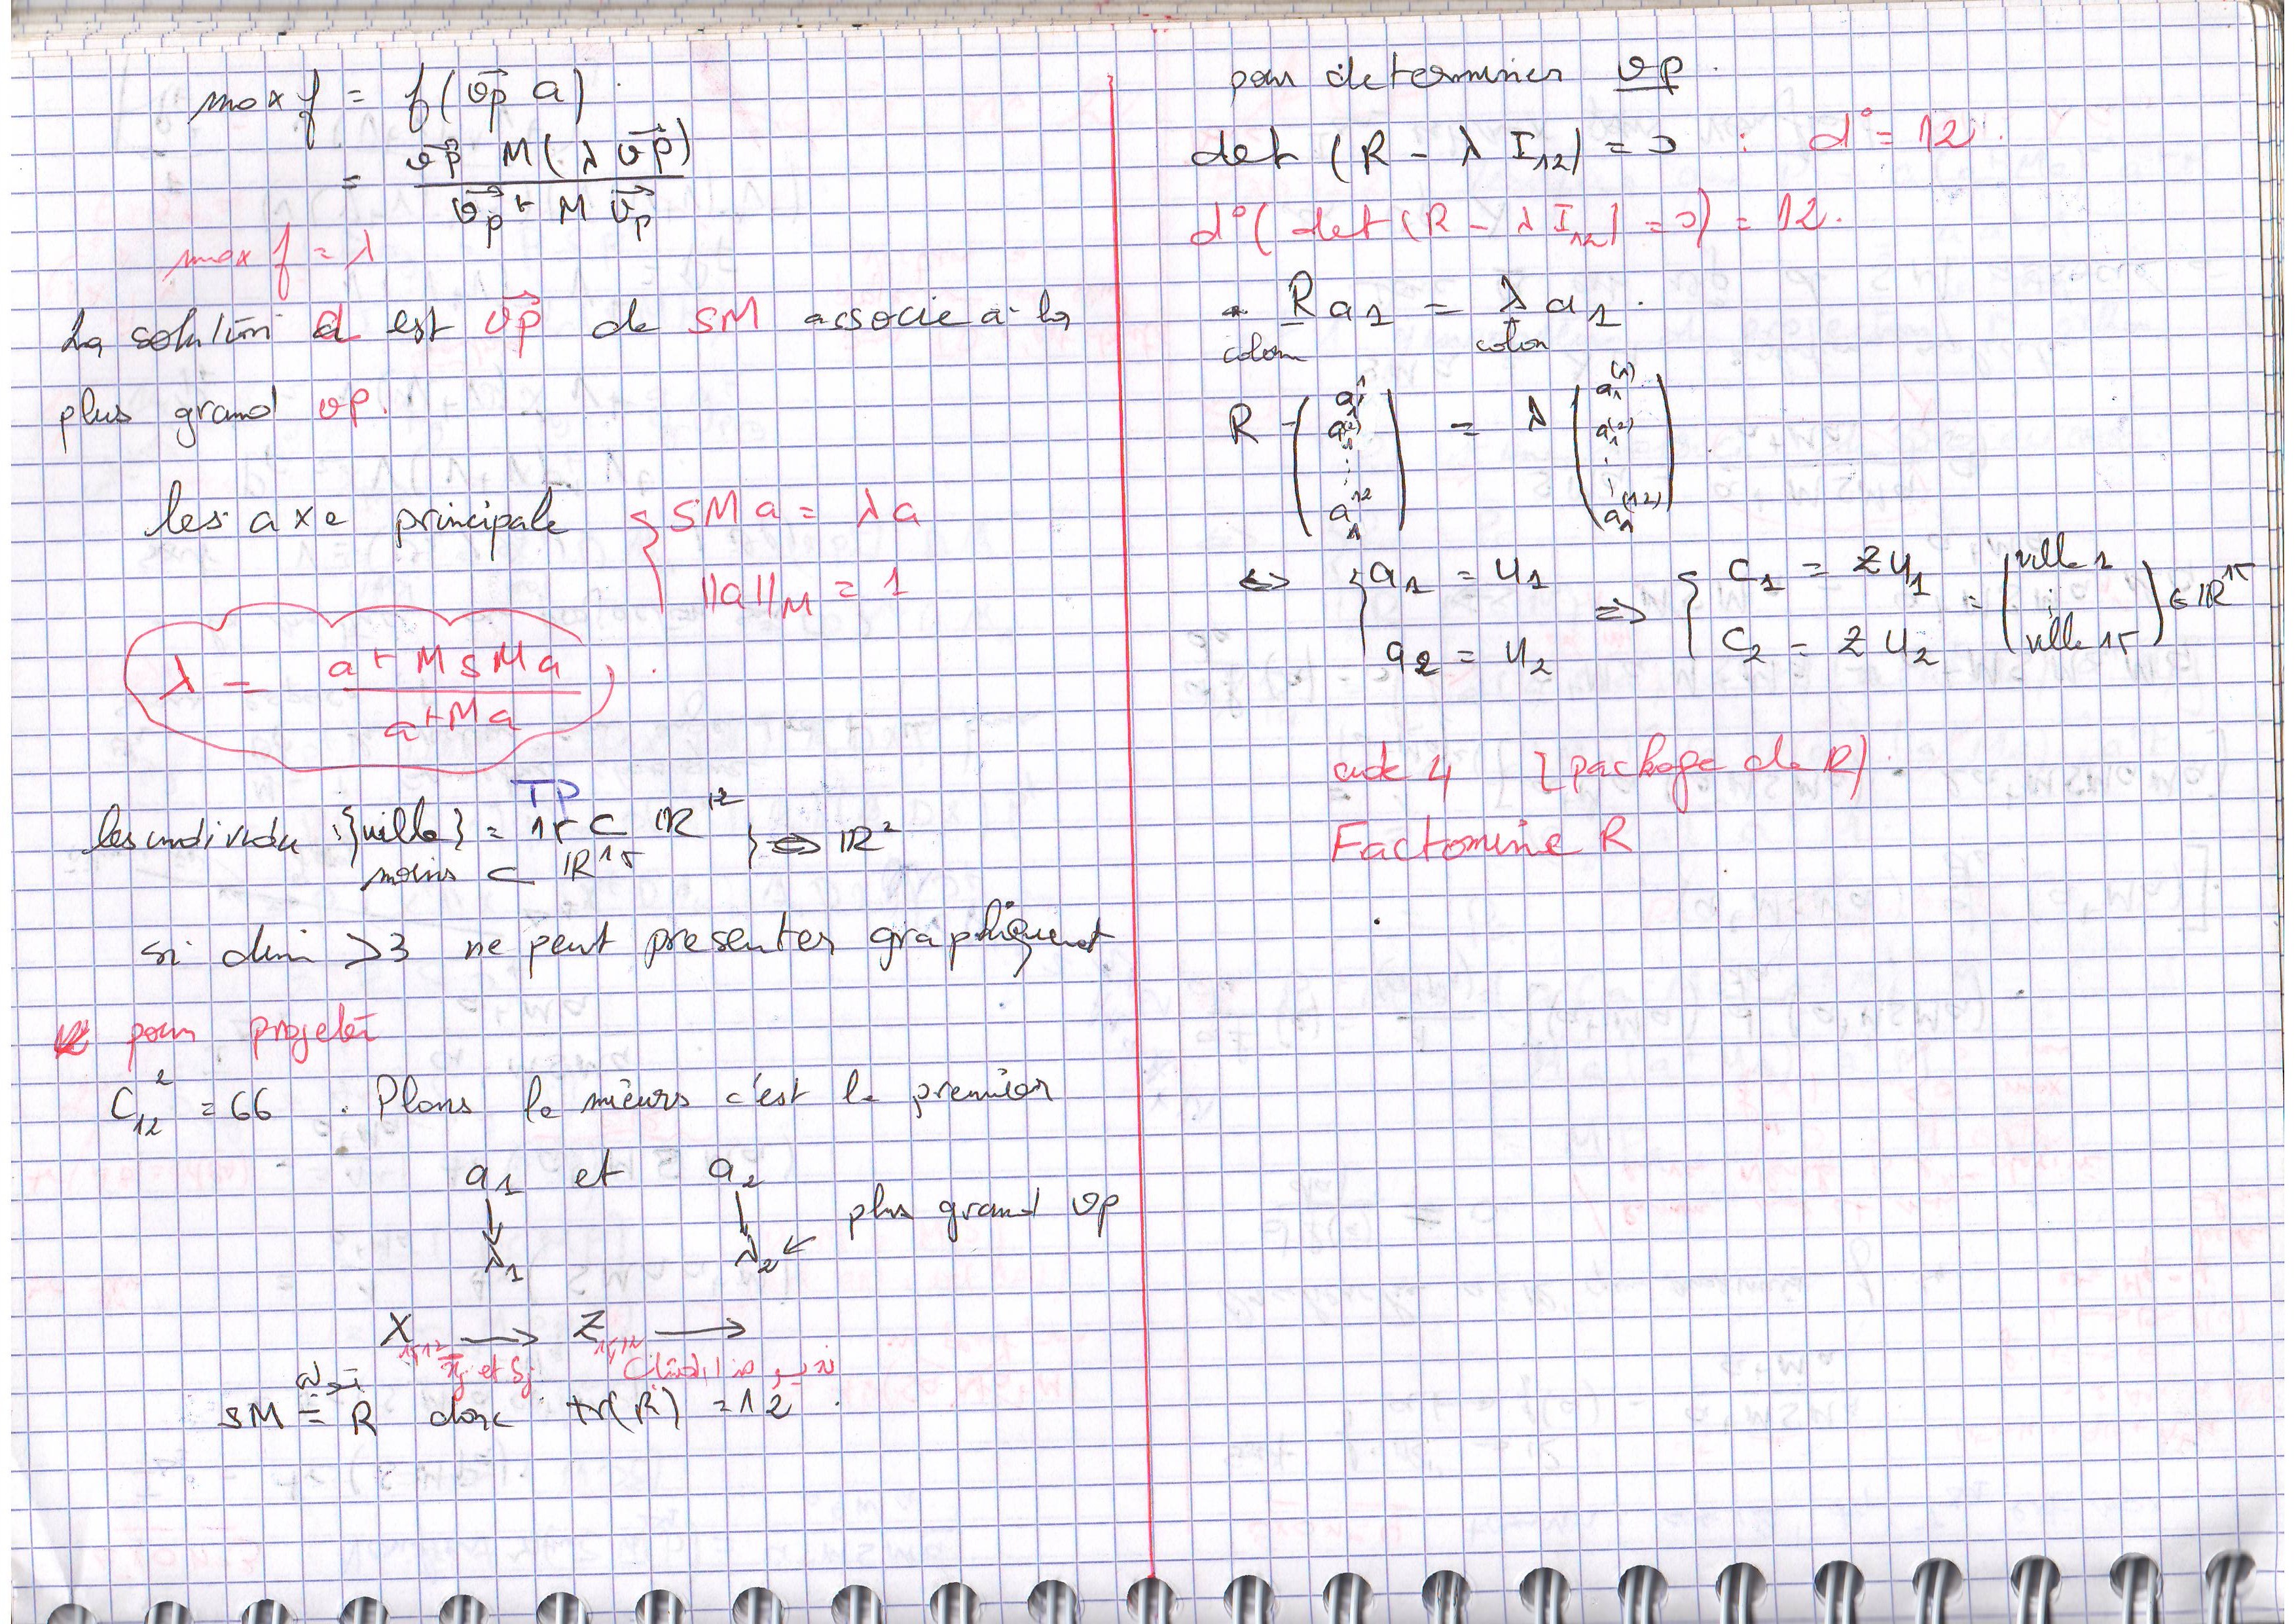 max f = f(v⃗p a)
= v⃗p M(λ v⃗p) / v⃗p^t M v⃗p
max f = λ
La solution a est v⃗p de SM associe a la
plus grand vp.
les axe principale { SMa = λa
||a||_M = 1
λ = a^t M S M a / a^t M a
TP
les individu : {ville} = 15 ⊂ IR^12
moins ⊂ IR^15 } ⇔ IR^2
si dim >3 ne peut presenter graphiquent
pour projeter
C_12^2 = 66 . Plans le mieurs c'est le premier
a_1 et a_2
↓ ↓ plus grand vp
λ_1 λ_2 ←
X_15,12 → Z_15,12 →
x̄_j et S_j
SM = R donc tr(R) = 12 .
pour determiner vp .
det (R - λ I_12) = 0 : d° = 12 .
d°( det (R - λ I_12) = 0) = 12.
R a_1 = λ a_1 .
colom colon
R ( a_1^1 a_1^(2) ⋮ a_1^12 ) = λ ( a_1^(1) a_1^(2) ⋮ a_1^(12) )
⇔ { a_1 = u_1 ⇒ { C_1 = Z u_1 = ( ville 1 ⋮ ville 15 ) ∈ IR^15
a_2 = u_2 C_2 = Z u_2
ade 4 [package de R)
Factomine R